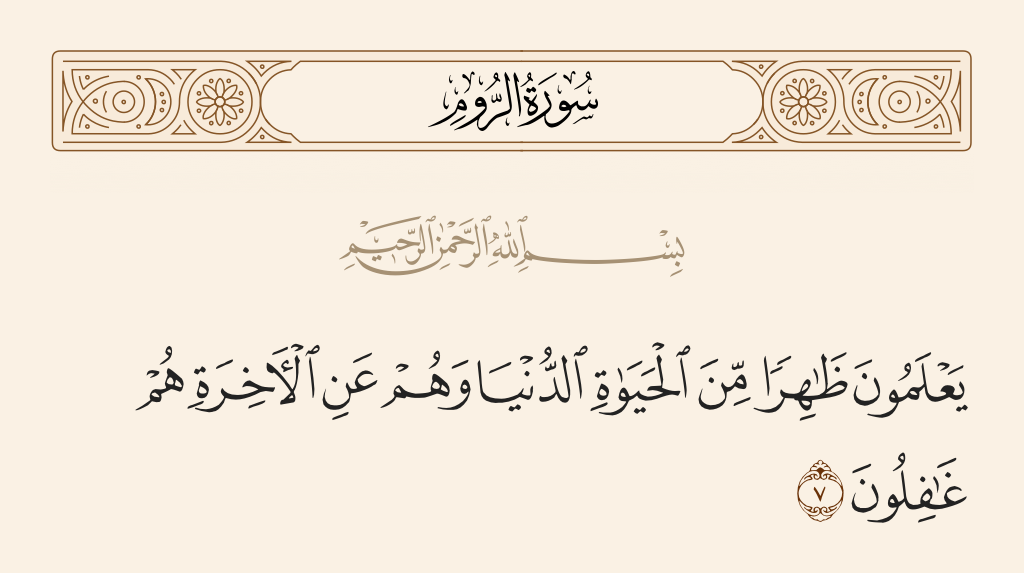 سُورَةُ الرُّومِ
بِسْمِ ٱللَّهِ ٱلرَّحْمَٰنِ ٱلرَّحِيمِ
يَعْلَمُونَ ظَٰهِرًا مِّنَ ٱلْحَيَوٰةِ ٱلدُّنْيَا وَهُمْ عَنِ ٱلْأَخِرَةِ هُمْ
غَٰفِلُونَ ٧